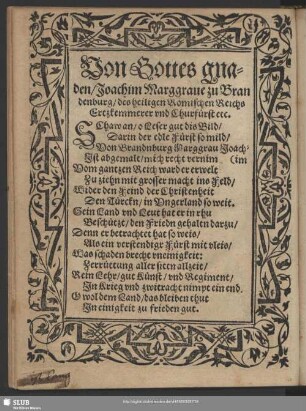 Von Gottes gna-
den/Joachim Marggraue zu Bran
denburg/des heiligen Romischen Reichs
Ertzkemmerer vnd Churfürst etc.
SChaw an/o Leser gut dis Bild/
Darin der edle Fürst so mild/
Von Brandnburg Marggrau Joach-
Ist abgemalt/mich recht vernim (im
Vom gantzen Reich ward er erwelt
Zu ziehn mit grosser macht ins Feld/
Wider den Feind der Christenheit
Den Türckn/in Vngerland so weit.
Sein Land vnd Leut hat er in rhu
Beschützt/den Frieden gehalten darzu/
Denn er betrachtet hat so weis/
Als ein verstendiger Fürst mit vleis/
Was schaden brecht vneinigkeit:
Zerrüttung aller sitten allzeit/
Kein Sehr gut Künst/vnd Regiment/
Jn Krieg vnd zwitracht nimpt ein end.
O wol dem Land/das bleiben thut
Jn einigkeit zu frieden gut.
SLUB